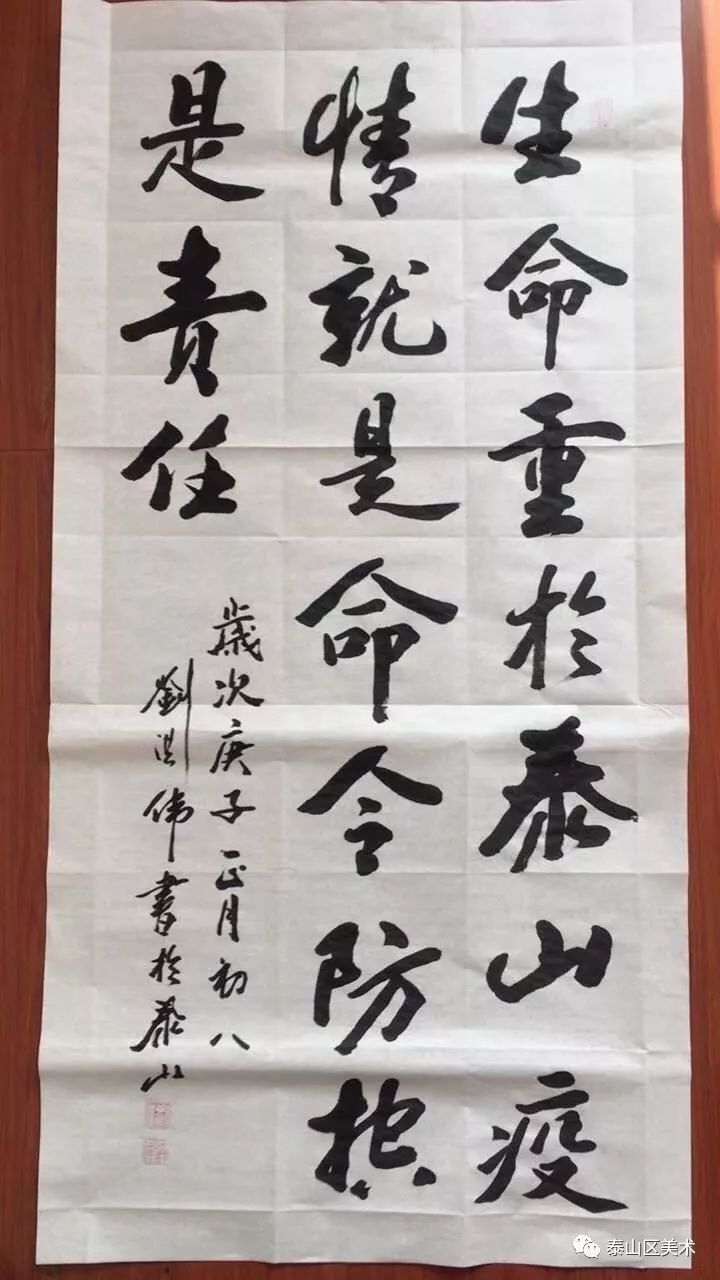 生命重於泰山疫
情就是命令防控
是責任
歲次庚子正月初八
劉洪伟書於泰山
泰山区美术